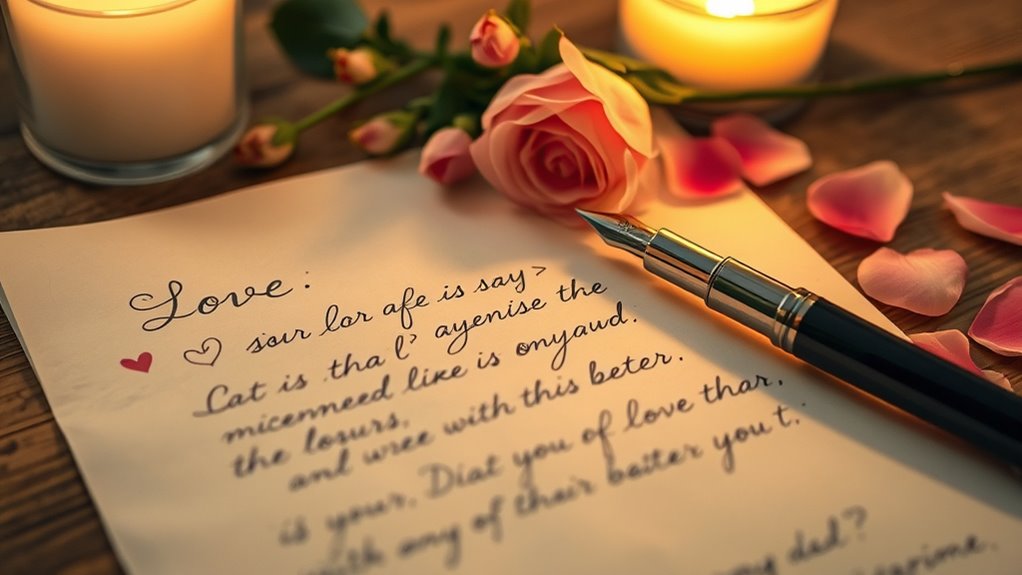 Love:
sour lor afe is say>
Cat is tha l' ayenise the
micenneed like is onyaud.
the losurs,
and wree with this beter.
is your. Diat you of love thar,
with any of their baiter you t.
dad?